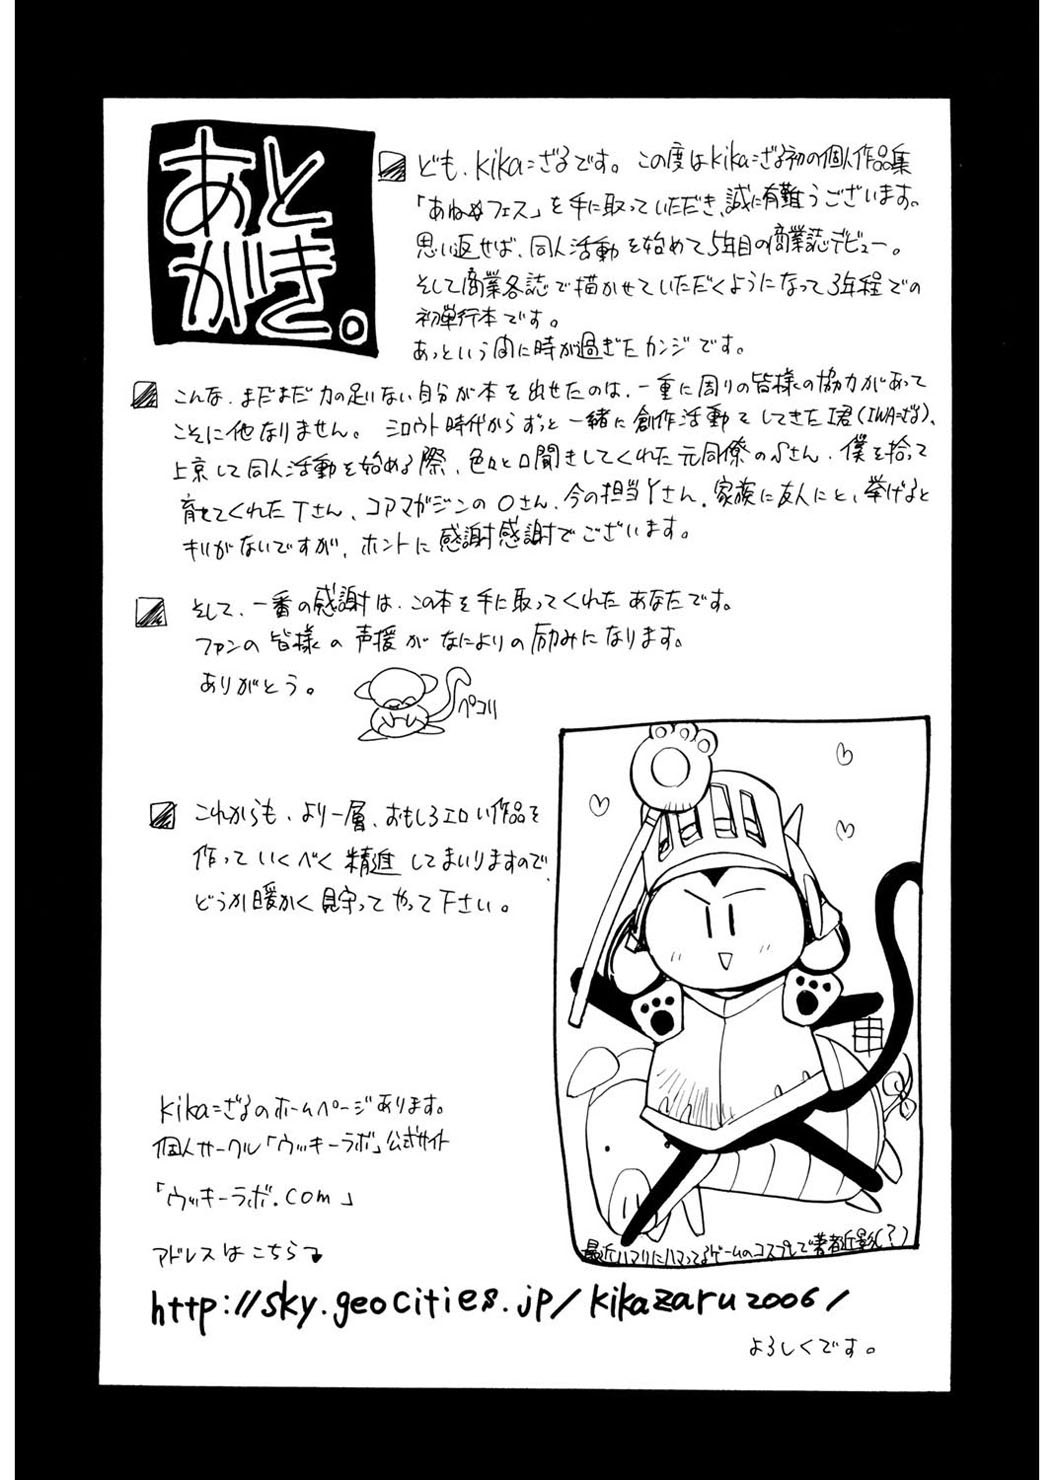 あと
がき。
ども、kika＝ざるです。この度はkika＝ざる初の個人作品集
「あねぬフェス」を手に取っていただき、誠に有難うございます。
思い返せば、同人活動を始めて5年目の商業誌デビュー。
そして商業各誌で描かせていただくようになって3年程での
初単行本です。
あっという間に時が過ぎたカンジです。
こんな、まだまだ力の足りない自分が本を出せたのは、一重に周りの皆様の協力があって
こそに他なりません。シロウト時代からずっと一緒に創作活動をしてきたI君(IWA＝ざる)、
上京して同人活動を始める際、色々と口聞きしてくれた元同僚のSさん、僕を拾って
育ててくれたTさん、コアマガジンのOさん、今の担当Yさん、家族に友人にと、挙げると
キリがないですが、ホントに感謝感謝でございます。
そして、一番の感謝は、この本を手に取ってくれたあなたです。
ファンの皆様の声援がなによりの励みになります。
ありがとう。
ペコリ
これからも、より一層、おもしろエロい作品を
作っていくべく精進してまいりますので、
どうか暖かく見守ってやって下さい。
kika＝ざるのホームページあります。
個人サークル「ウッキーラボ」公式サイト
「ウッキーラボ.com」
アドレスはこちら
http://sky.geocities.jp/kikazaru2006/
よろしくです。
最近ハマりにハマってるゲームのコスプレで著者近影(？)